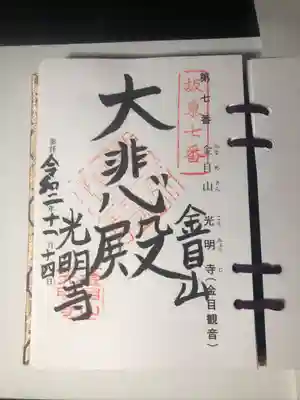 第七番 金目山 光明寺(金目観音)
坂東七番
金目山
大悲殿
光明寺
奉拝 令和二年十一月十四日